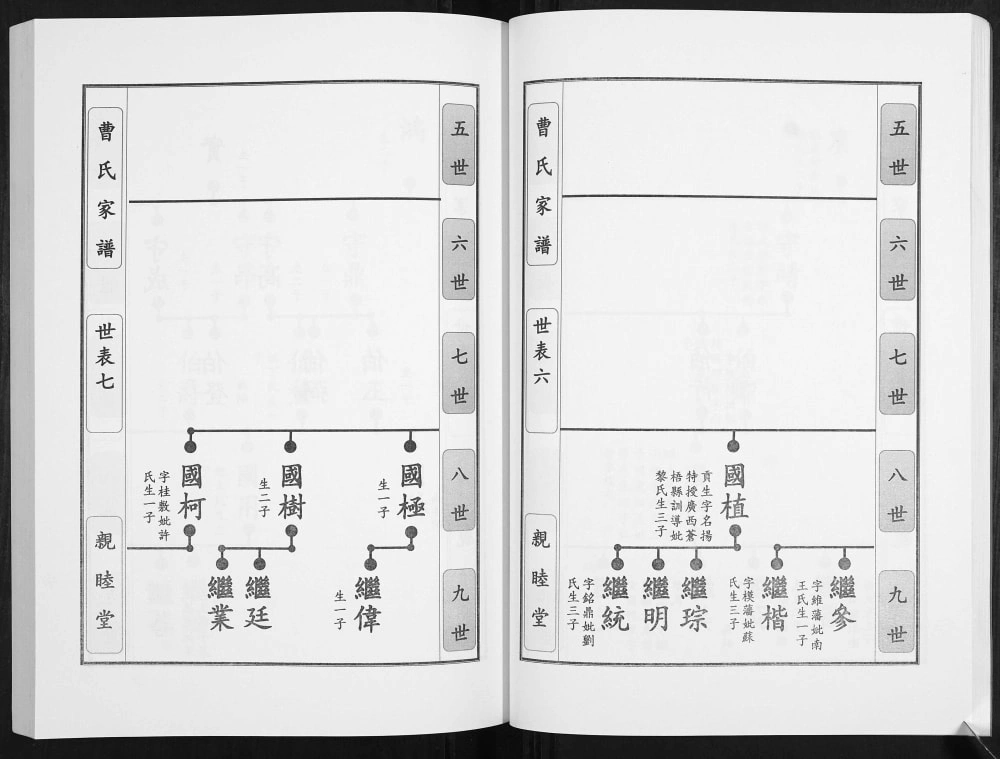 五世
六世
七世
八世
九世
國植
貢生字名揚
特授廣西蒼
梧縣訓導妣
黎氏生三子
繼參
字維藩妣南
王氏生一子
繼楷
字模藩妣蘇
氏生三子
繼琮
繼明
繼統
字銘鼎妣劉
氏生三子
曹氏家譜
世表六
親睦堂
五世
六世
七世
八世
九世
國極
生一子
繼偉
生一子
國樹
生二子
繼廷
繼業
國柯
字桂數妣許
氏生一子
曹氏家譜
世表七
親睦堂